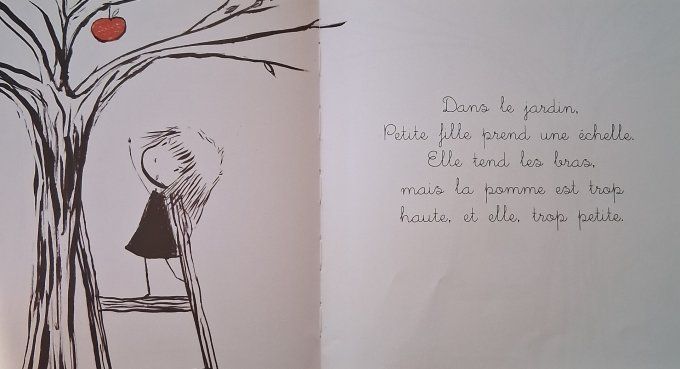 Dans le jardin,
Petite fille prend une échelle.
Elle tend les bras,
mais la pomme est trop
haute, et elle, trop petite.